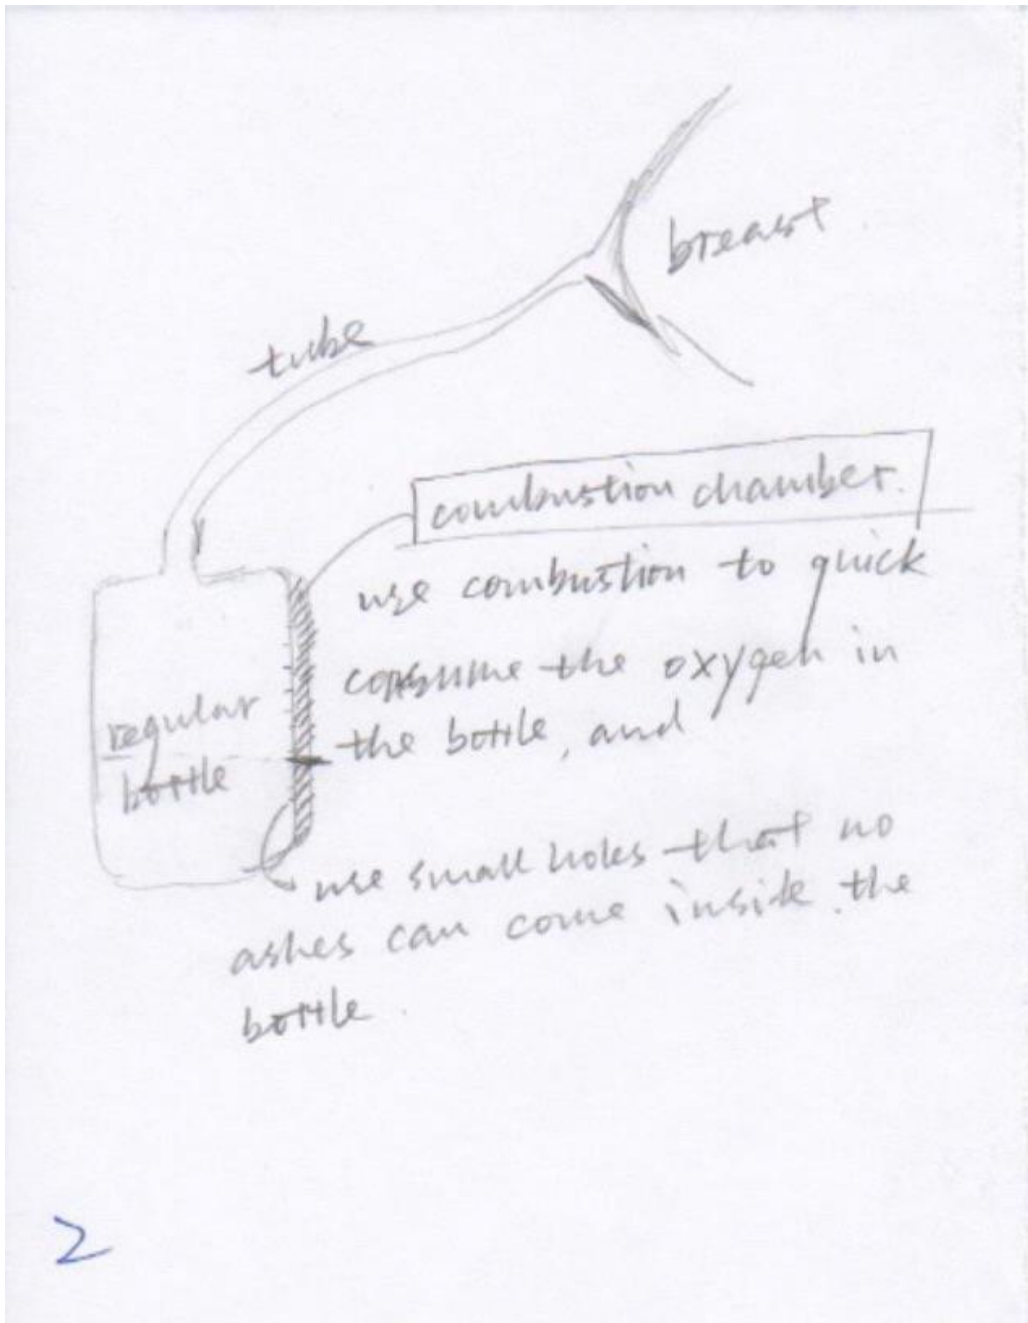 breast.
tube
combustion chamber.
use combustion to quick
consume the oxygen in
the bottle, and
regular
bottle
use small holes that no
ashes can come inside the
bottle.
2